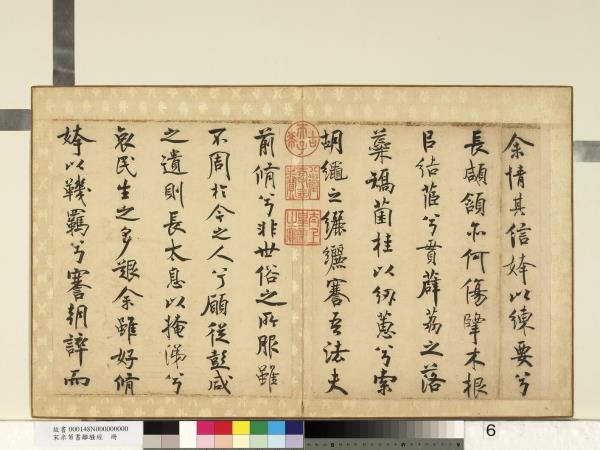 余情其信姱以練要兮
長顑頷亦何傷擥木根
㠯結茝兮貫薜荔之落
蘂矯菌桂以紉蕙兮索
胡繩之纚纚謇吾法夫
前脩兮非世俗之所服雖
不周於今之人兮願從彭咸
之遺則長太息以掩涕兮
哀民生之多艱余雖好脩
姱以鞿羈兮謇朝誶而
古希天子
故書 000148N000000000
宋米芾書離騷經 冊
6